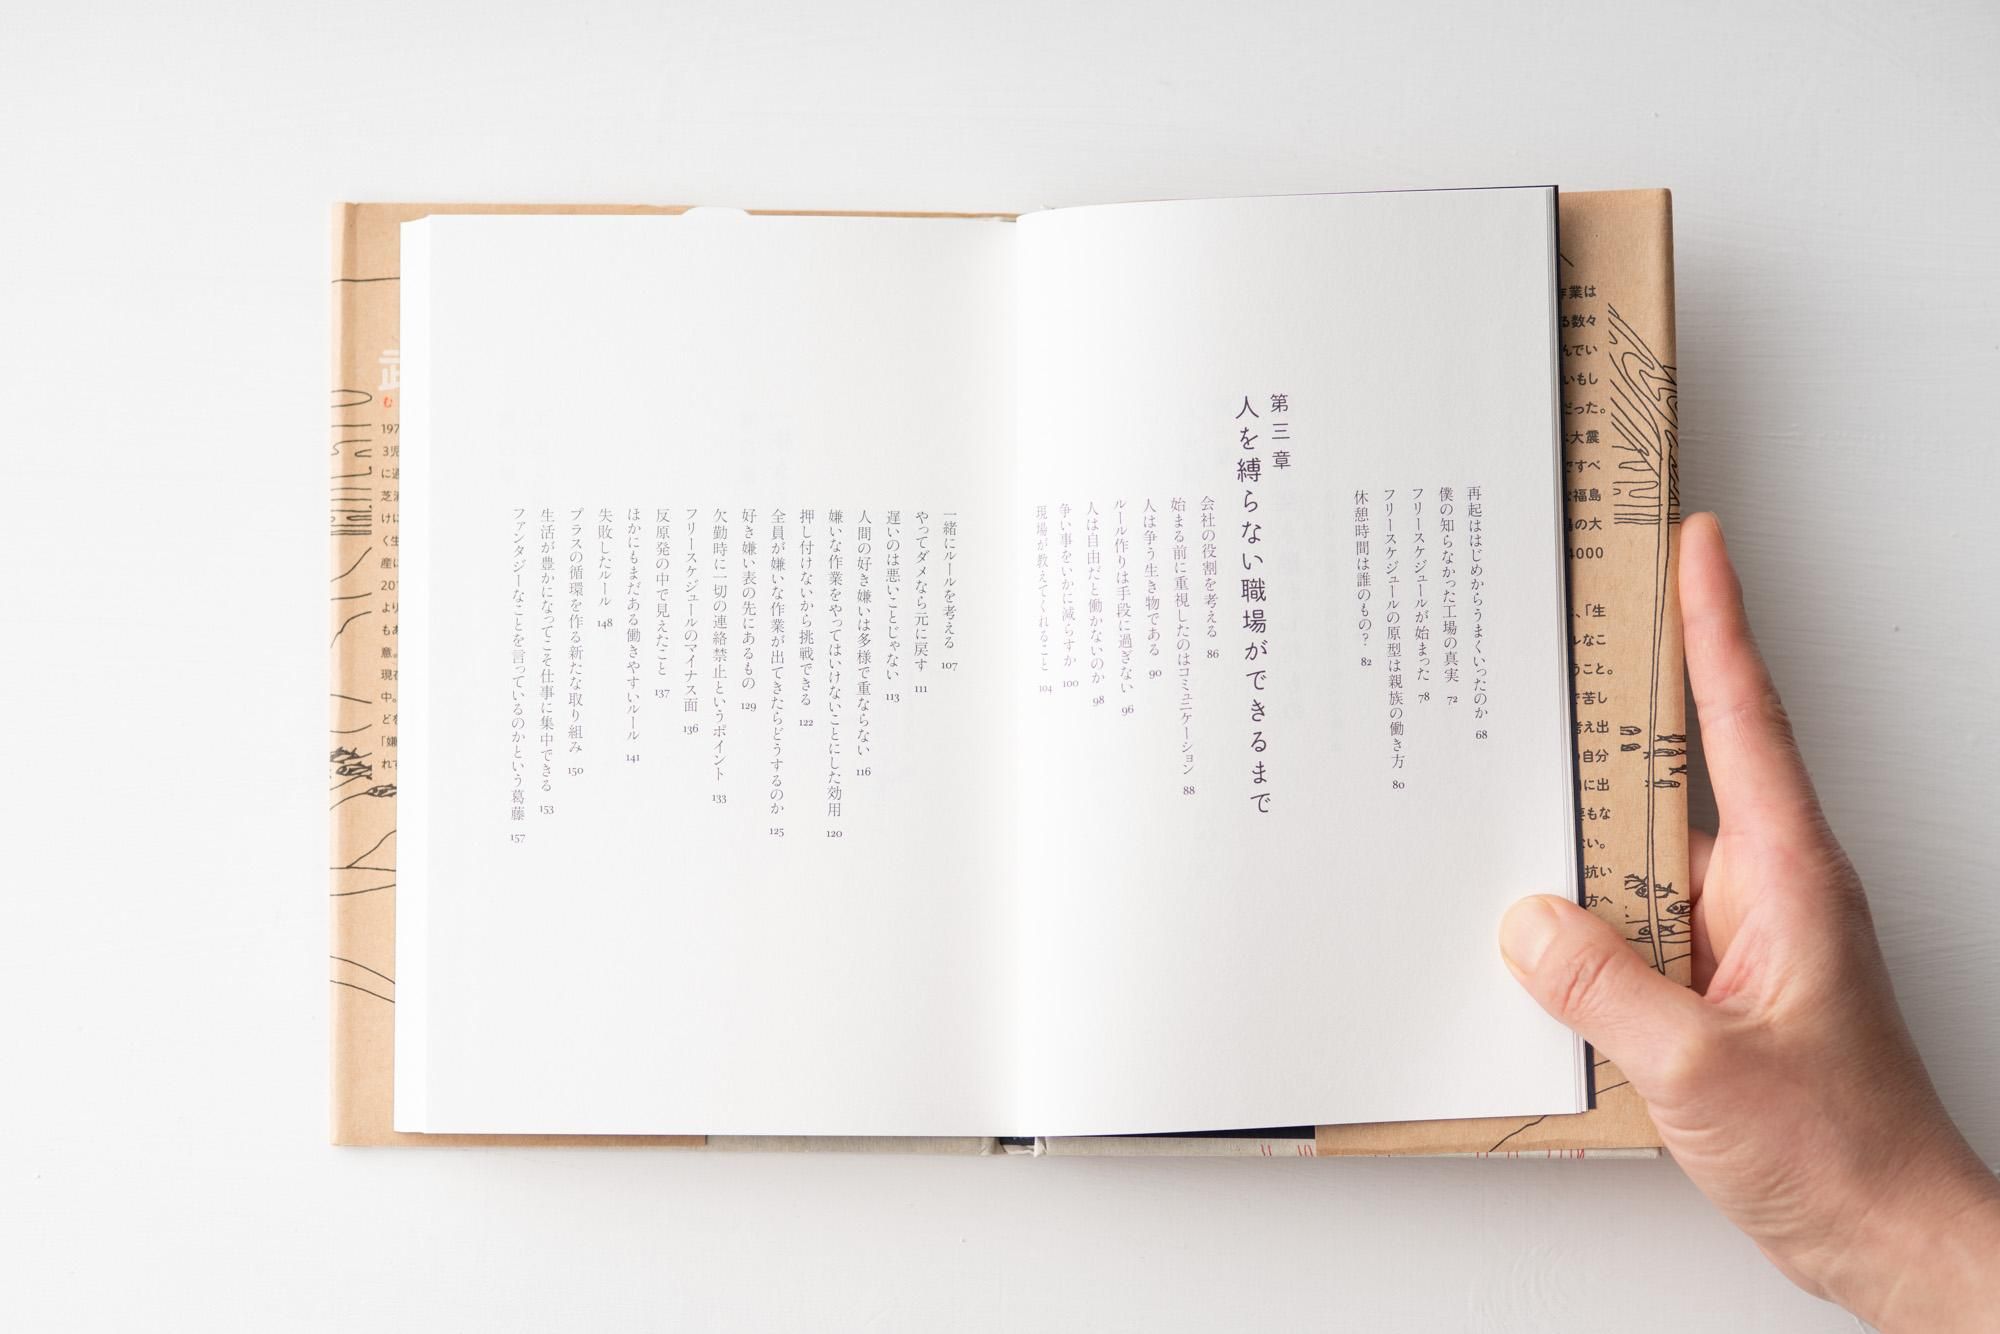 作業は
る数々
んでい
いもし
だった。
大震
ですべ
福島
の大
4000
、「生
レなこ
うこと。
で苦し
考え出
自分
に出
要もな
ない。
抗い
方へ
再起ははじめからうまくいったのか 68
僕の知らなかった工場の真実 72
フリースケジュールが始まった 78
フリースケジュールの原型は親族の働き方 80
休憩時間は誰のもの? 82
第三章
人を縛らない職場ができるまで
会社の役割を考える 86
始まる前に重視したのはコミュニケーション 88
人は争う生き物である 90
ルール作りは手段に過ぎない 96
人は自由だと働かないのか 98
争い事をいかに減らすか 100
現場が教えてくれること 104
一緒にルールを考える 107
やってダメなら元に戻す 111
遅いのは悪いことじゃない 113
人間の好き嫌いは多様で重ならない 116
嫌いな作業をやってはいけないことにした効用 120
押し付けないから挑戦できる 122
全員が嫌いな作業が出てきたらどうするのか 125
好き嫌い表の先にあるもの 129
欠勤時に一切の連絡禁止というポイント 133
フリースケジュールのマイナス面 136
反原発の中で見えたこと 137
ほかにもまだある働きやすいルール 141
失敗したルール 148
プラスの循環を作る新たな取り組み 150
生活が豊かになってこそ仕事に集中できる 153
ファンタジーなことを言っているのかという葛藤 157
武
む
197
3児
に通
芝浦
けに
く生
産に
201
より
もあ
意。
現在
中。
どを
「嫌
れて